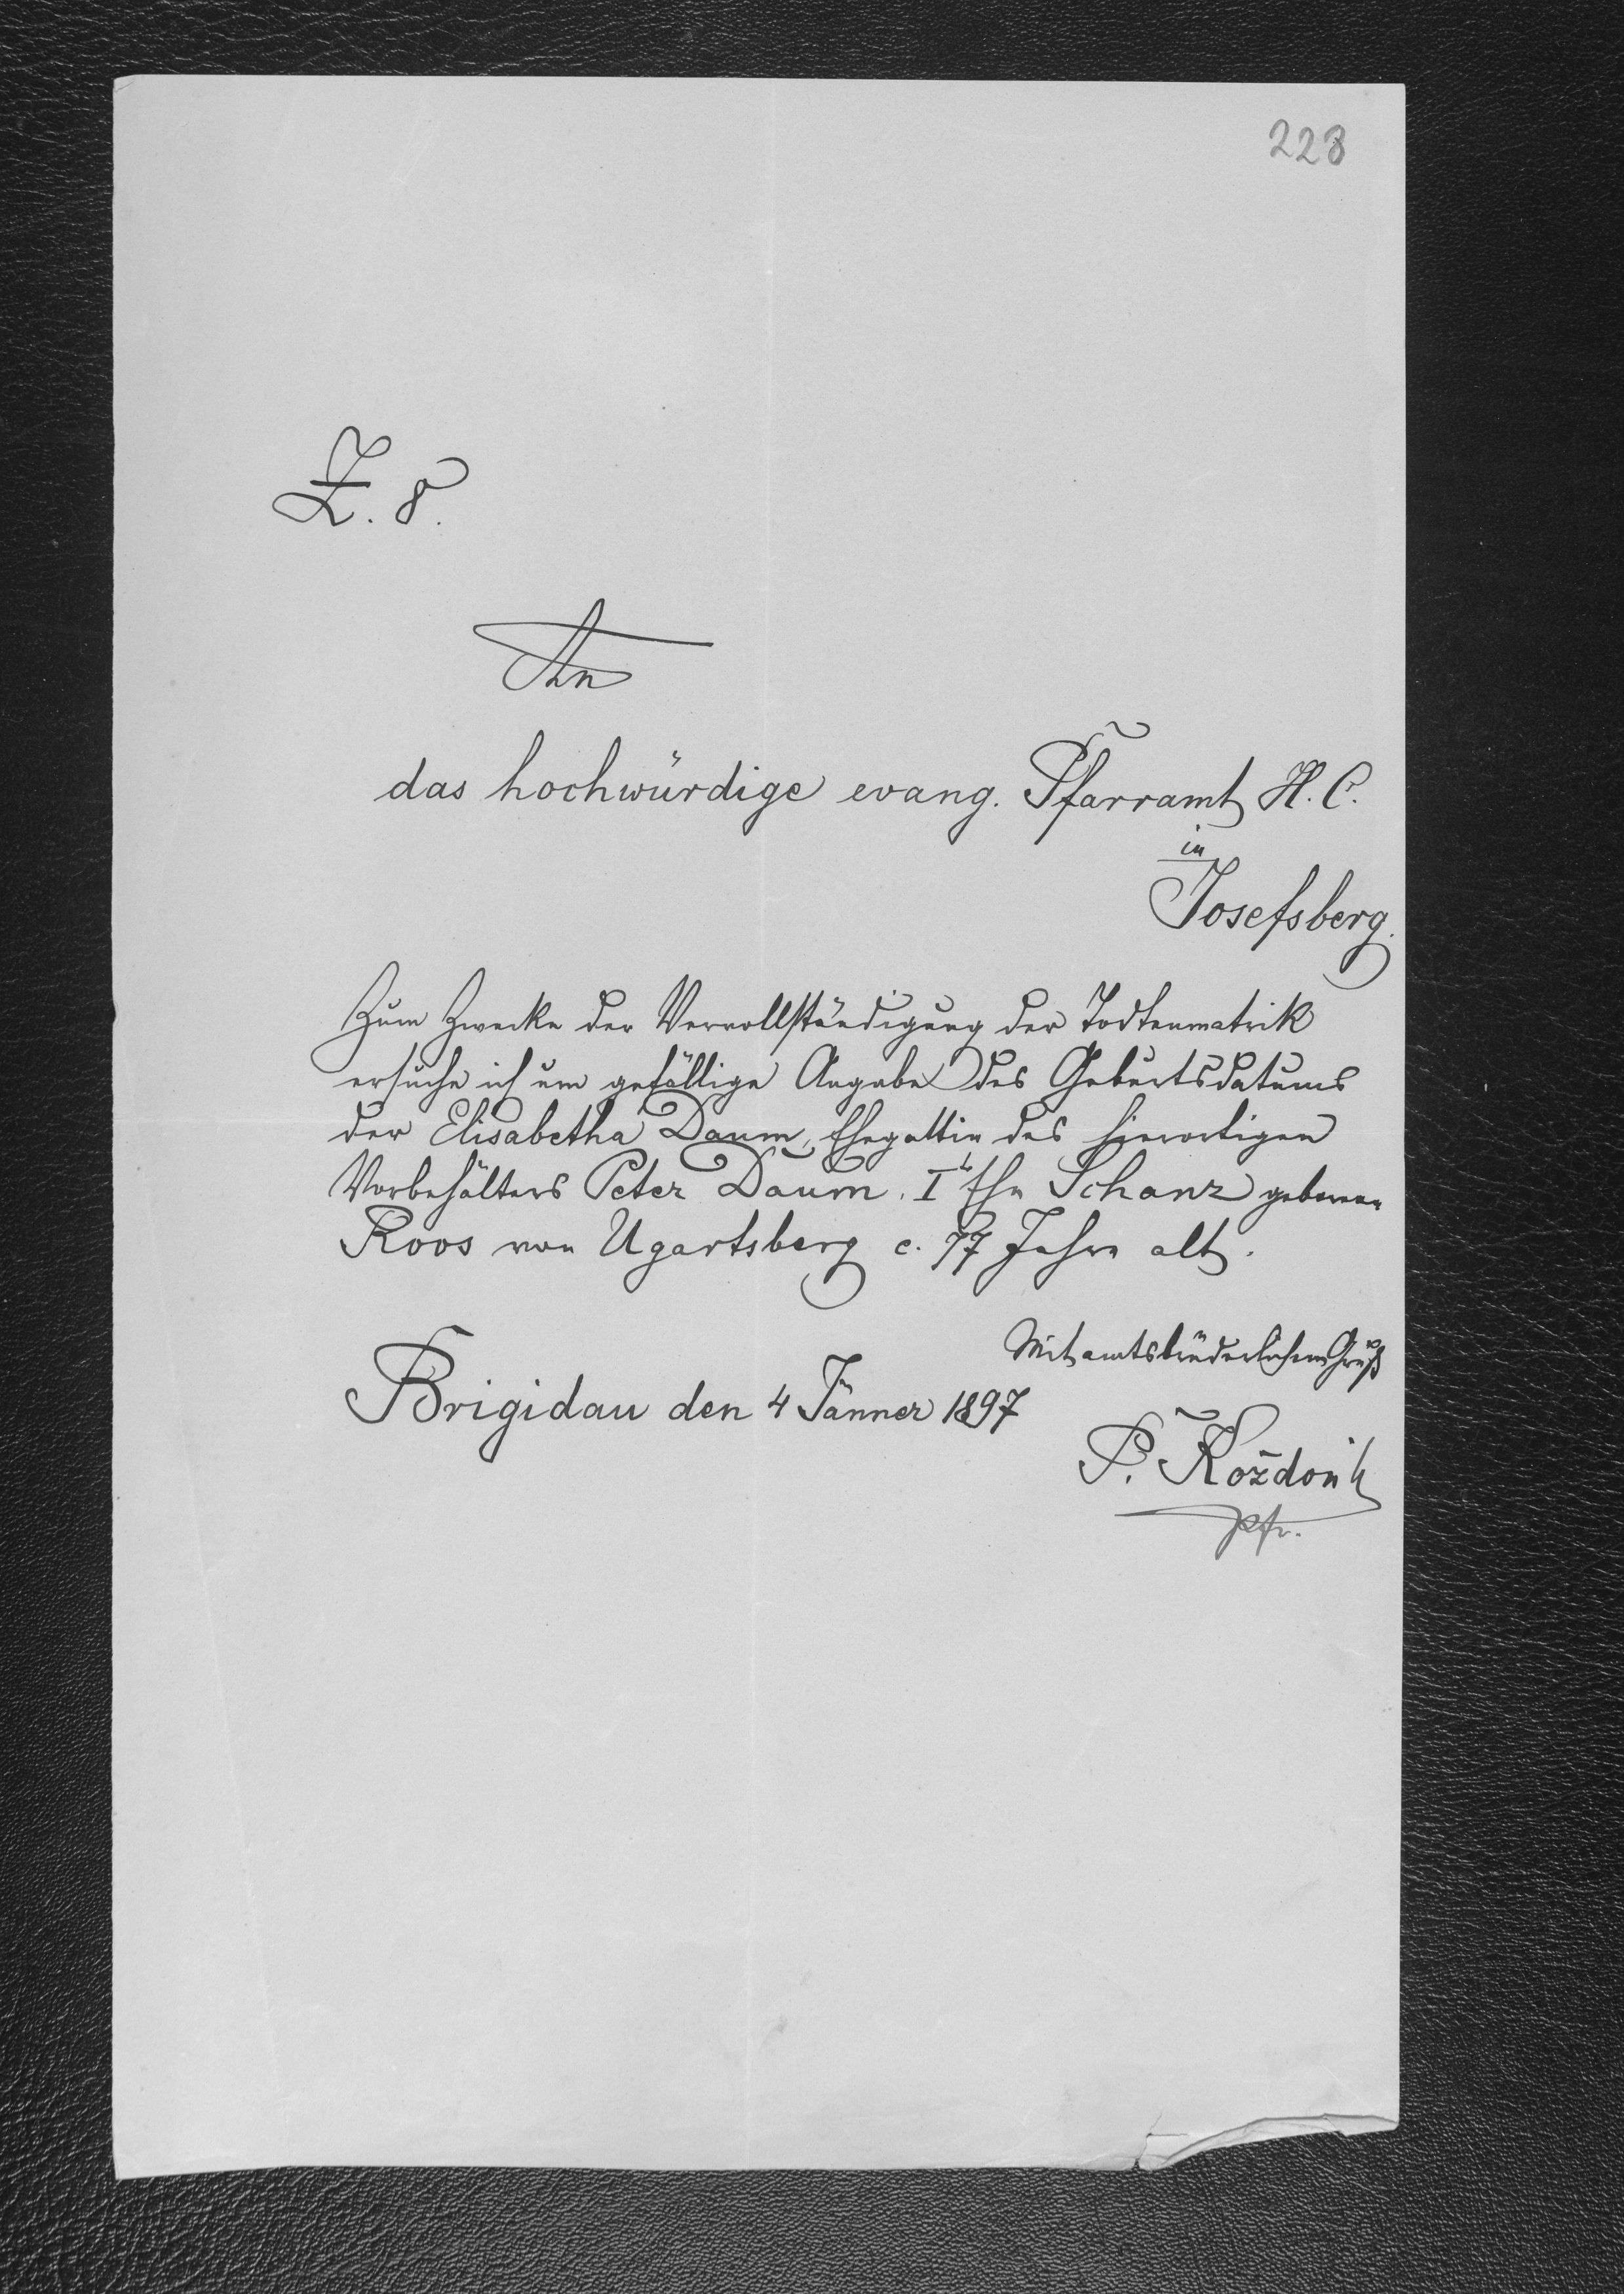 228
Z. 8.
An
das hochwürdige evang. Pfarramt H. C.
in
Josefsberg.
Zum Zwecke der Vervollständigung der Todtenmatrik
ersuche ich um gefällige Angabe des Geburtsdatums
der Elisabetha Daum, Ehegattin des hierortigen
Vorbehälters Peter Daum, I Ehe Schanz geborene
Roos von Ugartsberg c. 77 Jahre alt.
Mit amtsbrüderlichem Gruß
Brigidau den 4 Jänner 1897
P. Koždoń
Pfr.